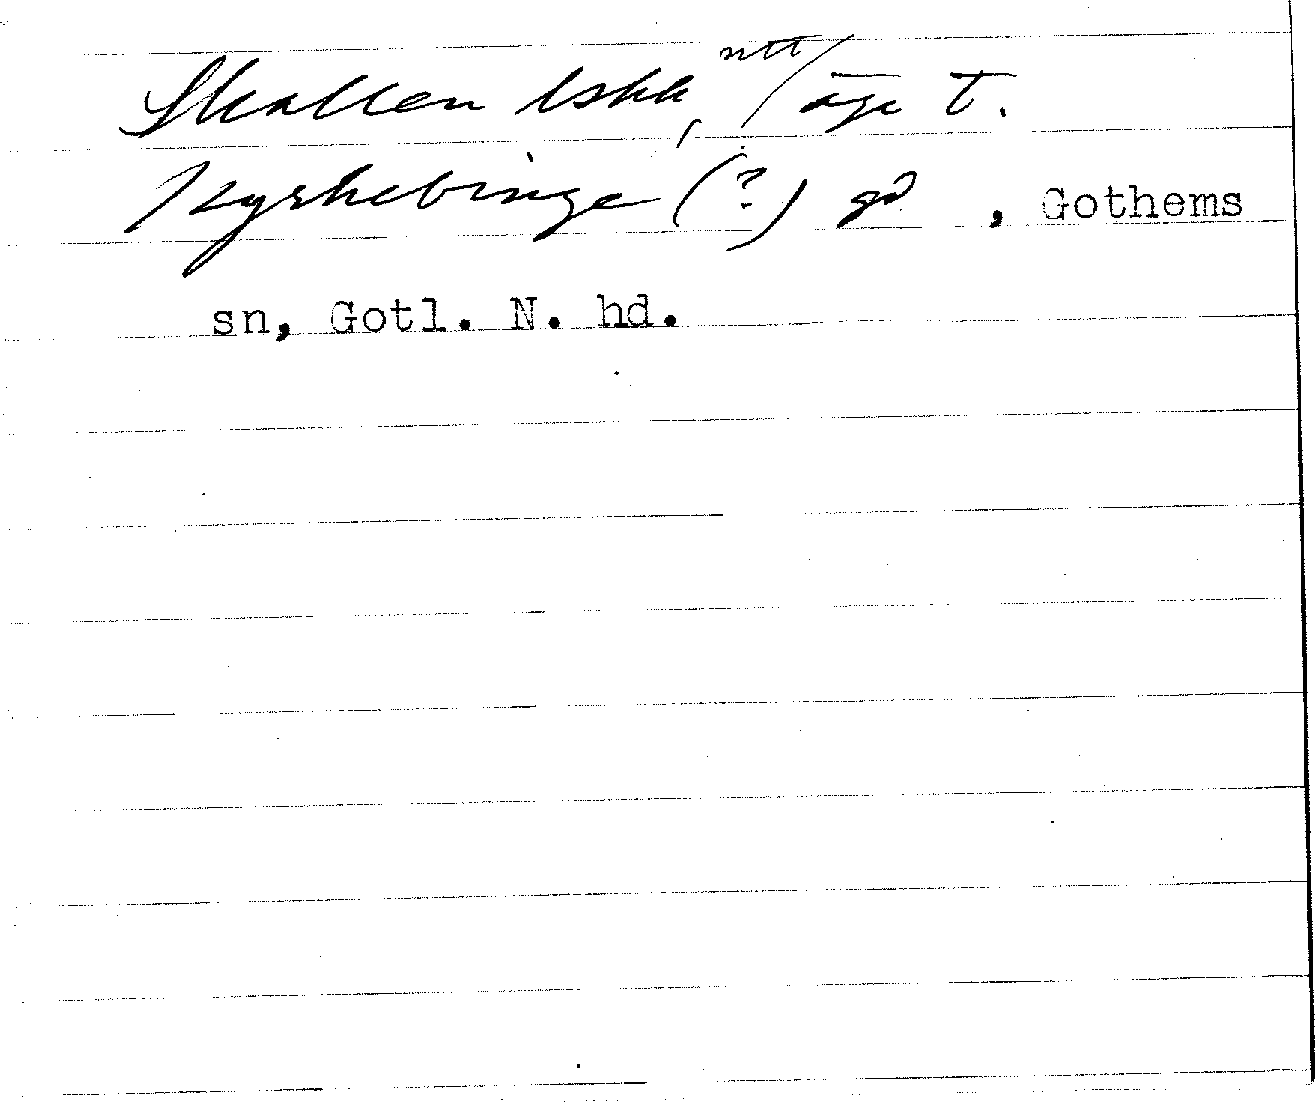 Skallen lskk, ntt/äga t.
Kyrkebinge (?) gd, Gothems
sn, Gotl. N. hd.